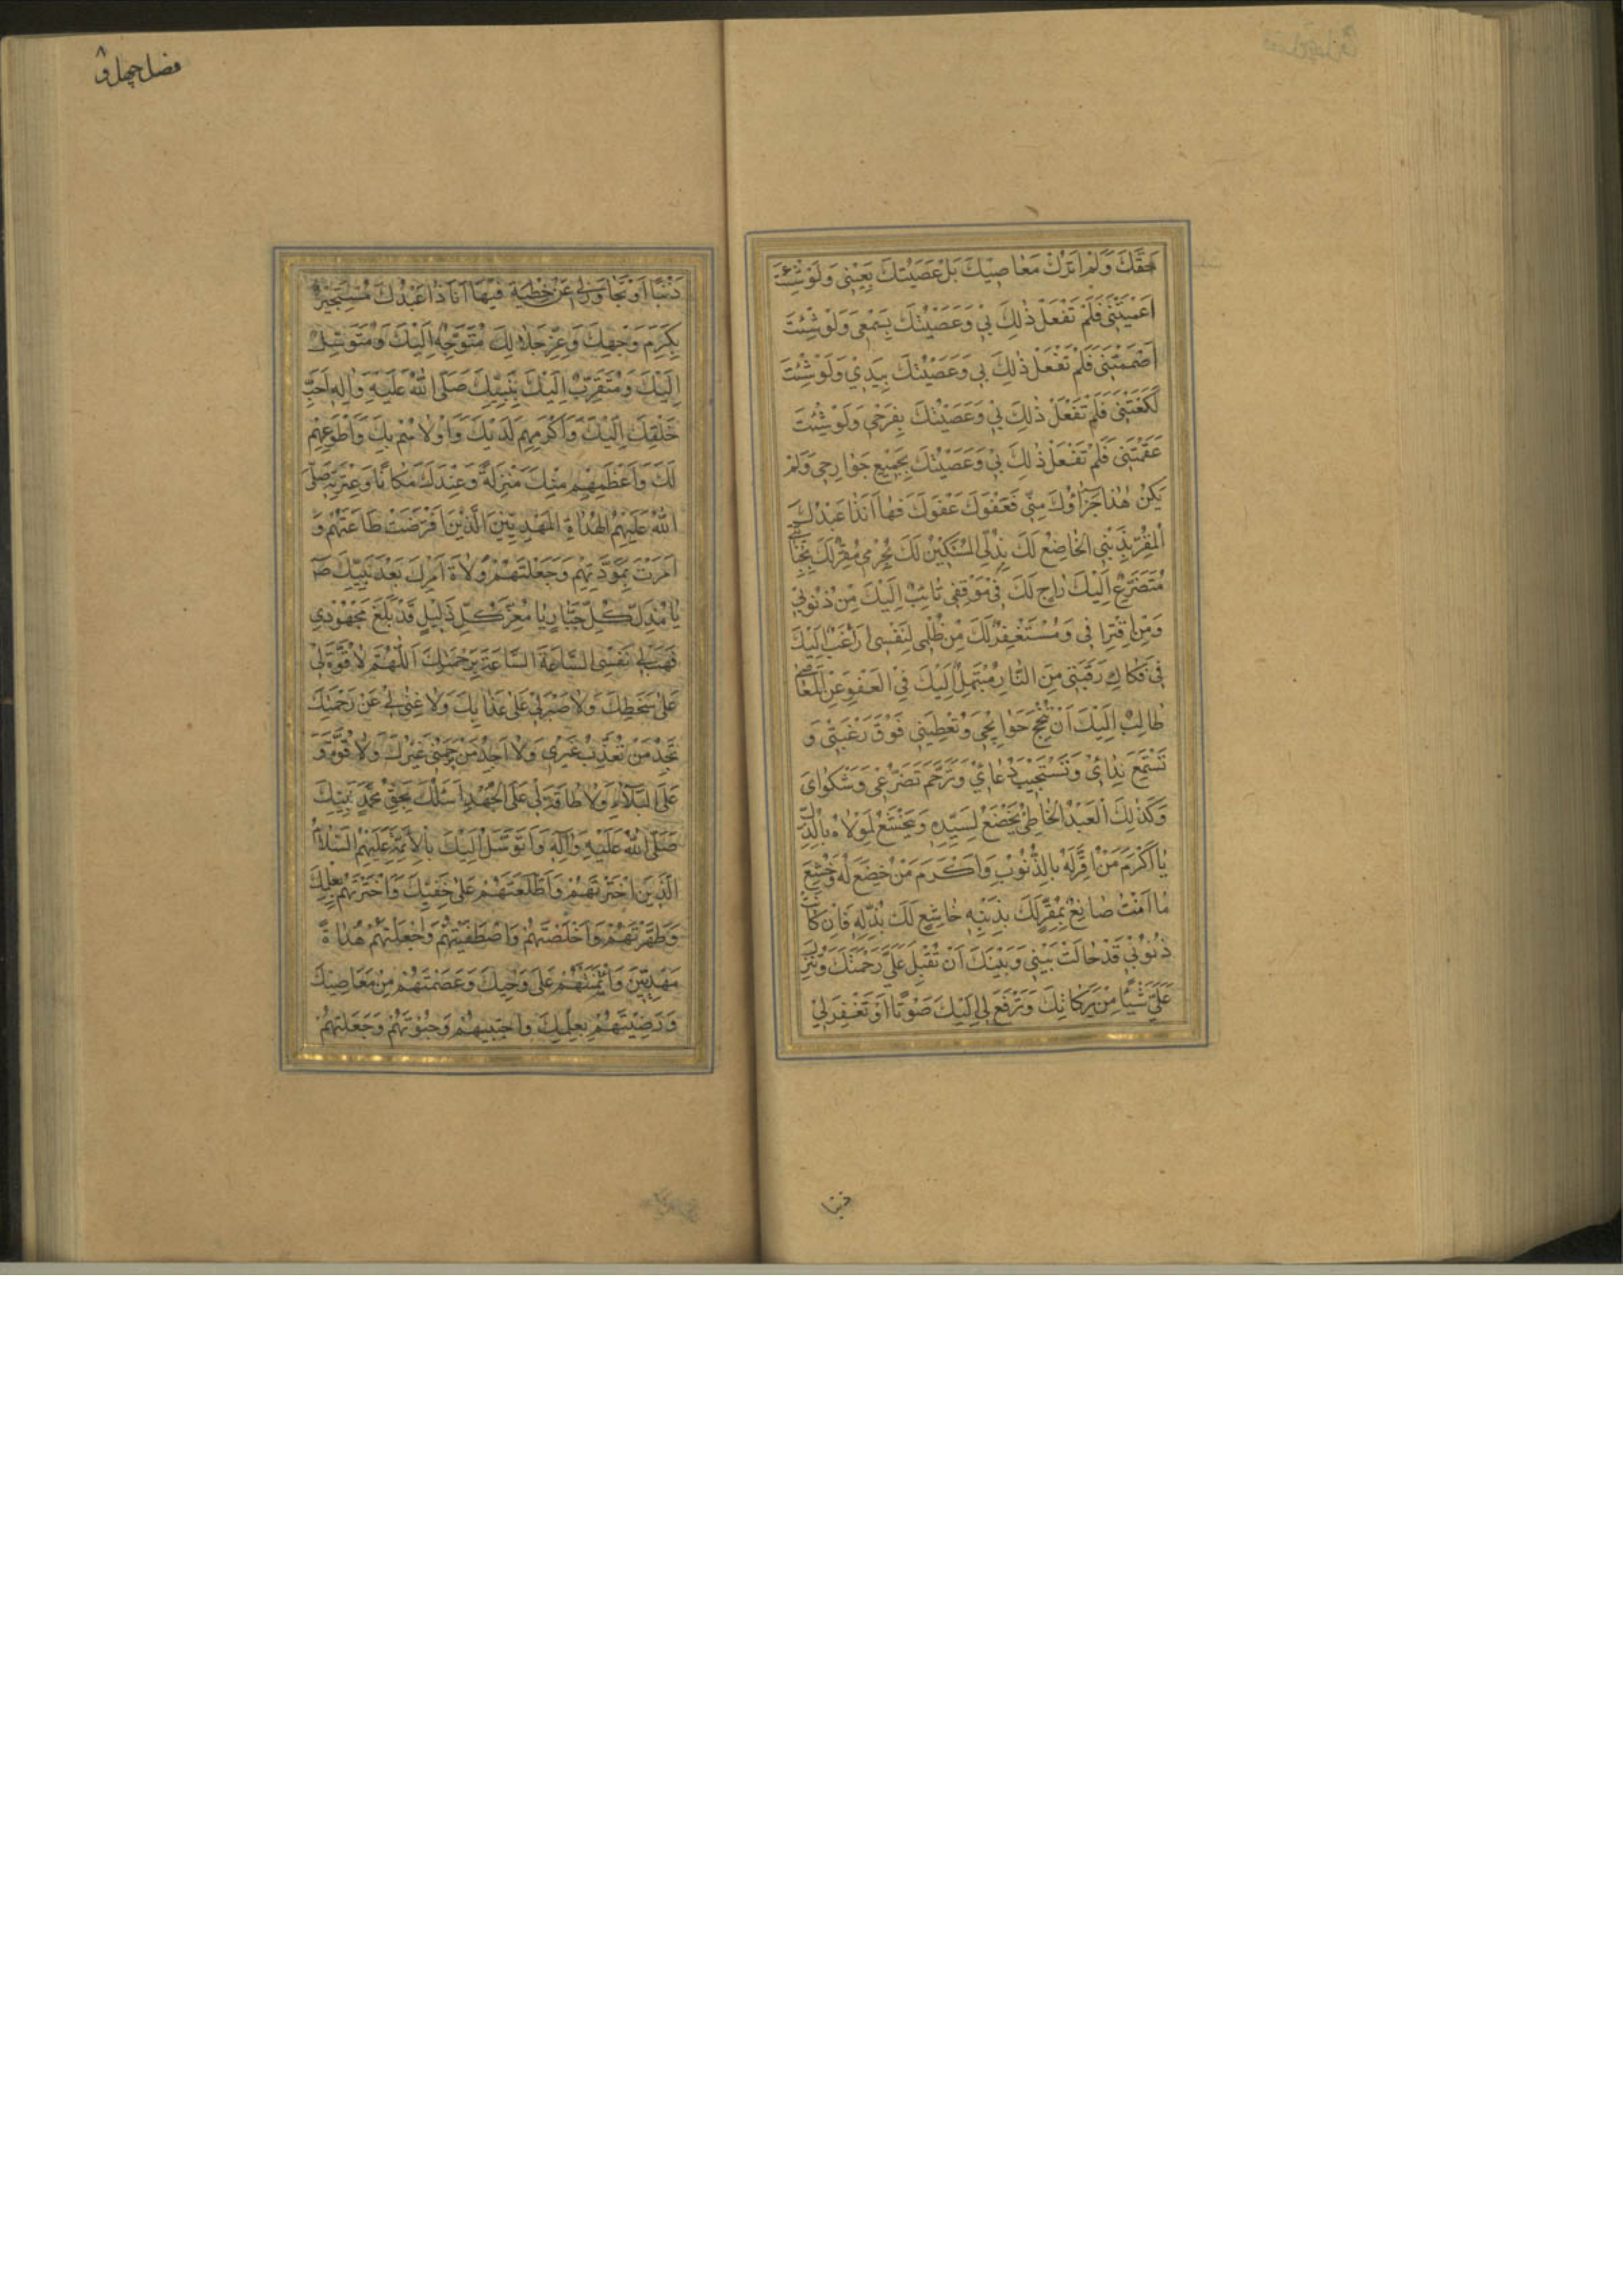 حَقَّكَ وَلَمْ اَتْرُكْ مَعٰاصِيْكَ بَلْ عَصَيْتُكَ بِعَيْنِى وَلَوْ شِئْتَ
اَعْمَيْتَنِى فَلَمْ تَفْعَلْ ذٰلِكَ بِي وَعَصَيْتُكَ بِسَمْعِى وَلَوْ شِئْتَ
اَصْمَمْتَنِى فَلَمْ تَفْعَلْ ذٰلِكَ بِي وَعَصَيْتُكَ بِيَدِيْ وَلَوْ شِئْتَ
لَكَنَعْتَنِى فَلَمْ تَفْعَلْ ذٰلِكَ بِي وَعَصَيْتُكَ بِفَرْجِي وَلَوْ شِئْتَ
عَقَمْتَنِى فَلَمْ تَفْعَلْ ذٰلِكَ بِي وَعَصَيْتُكَ بِجَمِيْعِ جَوٰارِحِى وَلَمْ
يَكُنْ هٰذٰا جَزٰاؤُكَ مِنِّي فَعَفْوَكَ عَفْوَكَ فَهٰا اَنَذٰا عَبْدُكَ
الْمُقِرُّ بِذَنْبِي الْخٰاضِعُ لَكَ بِذُلِّي الْمُسْتَكِيْنُ لَكَ بِجُرْمِي مُقِرٌّ لَكَ بِجِنٰايَتِي
مُتَضَرِّعٌ اِلَيْكَ رٰاجٍ لَكَ فِي مَوْقِفِي تٰائِبٌ اِلَيْكَ مِنْ ذُنُوبِي
وَمِنْ اقْتِرٰافِي وَمُسْتَغْفِرٌ لَكَ مِنْ ظُلْمِي لِنَفْسِى رٰاغِبٌ اِلَيْكَ
فِي فَكٰاكِ رَقَبَتِي مِنَ النّٰارِ مُبْتَهِلٌ اِلَيْكَ فِي الْعَفْوِ عَنِ الْمَعٰاصِي
طٰالِبٌ اِلَيْكَ اَنْ تُنْجِحَ حَوٰائِجِي وَتُعْطِيَنِي فَوْقَ رَغْبَتِي وَ
تَسْتَمِعَ نِدٰائِي وَتَسْتَجِيْبَ دُعٰائِيْ وَتَرْحَمَ تَضَرُّعِى وَشَكْوٰاىَ
وَكَذٰلِكَ الْعَبْدُ الْخٰاطِئُ يَخْضَعُ لِسَيِّدِهِ وَيَخْشَعُ لِمَوْلاٰهُ بِالذُّلِّ
يٰا اَكْرَمَ مَنْ اُقِرَّ لَهُ بِالذُّنُوْبِ وَاَكْرَمَ مَنْ خُضِعَ لَهُ وَخُشِعَ
مٰا اَنْتَ صٰانِعٌ بِمُقِرٍّ لَكَ بِذَنْبِهِ خٰاشِعٍ لَكَ بِذُلِّهِ فَاِنْ كٰانَتْ
ذُنُوْبِي قَدْ حٰالَتْ بَيْنِي وَبَيْنَكَ اَنْ تُقْبِلَ عَلَيَّ رَحْمَتُكَ وَتَنْزِلَ
عَلَيَّ شَيْئًا مِنْ بَرَكٰاتِكَ وَتَرْفَعَ لِي اِلَيْكَ صَوْتًا اَوْ تَغْفِرَ لِيْ
ذنبا
فصل چهل و
ذَنْبًا اَوْ تَجٰاوَزَ لِي عَنْ خَطِيْئَةٍ فَيٰهٰا اَنَا ذٰا عَبْدُكَ مُسْتَجِيْرٌ
بِكَرَمِ وَجْهِكَ وَعِزِّ جَلاٰلِكَ مُتَوَجِّهٌ اِلَيْكَ وَمُتَوَسِّلٌ
اِلَيْكَ وَمُتَقَرِّبٌ اِلَيْكَ بِنَبِيِّكَ صَلَّى اللّٰهُ عَلَيْهِ وَاٰلِهِ اَحَبِّ
خَلْقِكَ اِلَيْكَ وَاَكْرَمِهِمْ لَدَيْكَ وَاَوْلاٰهُمْ بِكَ وَاَطْوَعِهِمْ
لَكَ وَاَعْظَمِهِمْ مِنْكَ مَنْزِلَةً وَعِنْدَكَ مَكٰانًا وَعِتْرَتِهِ صَلَّى
اللّٰهُ عَلَيْهِمُ الْهُدٰاةِ الْمَهْدِيِّيْنَ الَّذِيْنَ افْتَرَضْتَ طٰاعَتَهُمْ وَ
اَمَرْتَ بِمَوَدَّتِهِمْ وَجَعَلْتَهُمْ وُلاٰةَ اَمْرِكَ بَعْدَ نَبِيِّكَ ص
يٰا مُذِلَّ كُلِّ جَبّٰارٍ يٰا مُعِزَّ كُلِّ ذَلِيْلٍ قَدْ بَلَغَ مَجْهُوْدِي
فَهَبْ لِي نَفْسِى السّٰاعَةَ السّٰاعَةَ بِرَحْمَتِكَ اَللّٰهُمَّ لاٰ قُوَّةَ لِي
عَلىٰ سَخَطِكَ وَلاٰ صَبْرَ لِي عَلىٰ عَذٰابِكَ وَلاٰ غِنىٰ لِي عَنْ رَحْمَتِكَ
تَجِدُ مَنْ تُعَذِّبُ غَيْرِي وَلاٰ اَجِدُ مَنْ يَرْحَمُنِي غَيْرَكَ وَلاٰ قُوَّةَ
عَلَى الْبَلاٰءِ وَلاٰ طٰاقَةَ لِي عَلَى الْجُهْدِ اَسْئَلُكَ بِحَقِّ مُحَمَّدٍ نَبِيِّكَ
صَلَّى اللّٰهُ عَلَيْهِ وَاٰلِهِ وَاَتَوَسَّلُ اِلَيْكَ بِالْاَئِمَّةِ عَلَيْهِمُ السَّلاٰمُ
الَّذِيْنَ اخْتَرْتَهُمْ وَاَطْلَعْتَهُمْ عَلىٰ خَفِيِّكَ وَاخْتَرْتَهُمْ بِعِلْمِكَ
وَطَهَّرْتَهُمْ وَاَخْلَصْتَهُمْ وَاصْطَفَيْتَهُمْ وَجَعَلْتَهُمْ هُدٰاةً
مَهْدِيِّيْنَ وَائْتَمَنْتَهُمْ عَلىٰ وَحْيِكَ وَعَصَمْتَهُمْ مِنْ مَعٰاصِيْكَ
وَرَضِيْتَهُمْ بِعِلْمِكَ وَاجْتَبَيْتَهُمْ وَحَبَوْتَهُمْ وَجَعَلْتَهُمْ